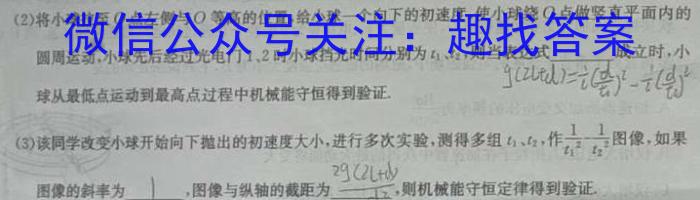 (2)将小 点左侧与O等高的位置,给小球一个向下的初速度,使小球绕O点做竖直平面内的
微信公众号关注:趣找答案
圆周运动,小球先后经过光电门1、2时小球挡光时间分别为t₁、t₂,则当表达式 成立时,小
g(2L+d)=½(d/t₁)²-½(d/t₂)²
球从最低点运动到最高点过程中机械能守恒得到验证.
(3)该同学改变小球开始向下抛出的初速度大小,进行多次实验,测得多组t₁、t₂,作1/t₁²-1/t₂²图像,如果
图像的斜率为 1 ,图像与纵轴的截距为 2g(2L+d)/d² ,则机械能守恒定律得到验证.